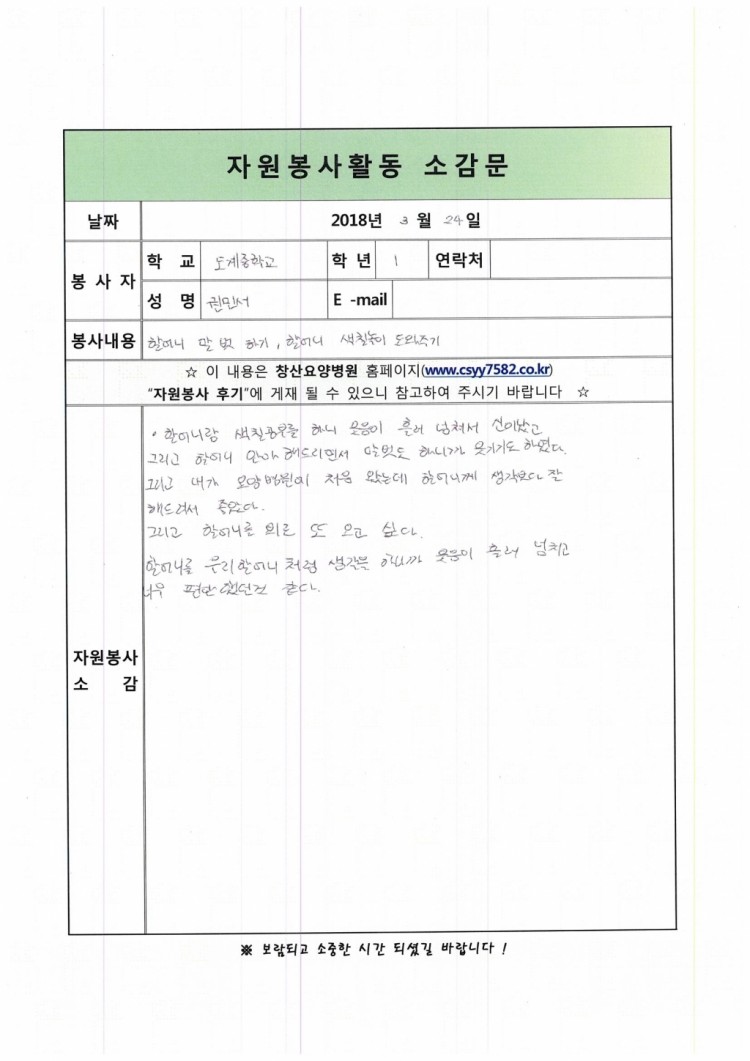 자원봉사활동 소감문
날짜 2018년 3 월 24일
봉 사 자
학 교 도계중학교 학 년 1 연락처
성 명 권민서 E -mail
봉사내용 할머니 말 벗 하기, 할머니 색칠놀이 도와주기
☆ 이 내용은 창산요양병원 홈페이지(www.csyy7582.co.kr)
"자원봉사 후기"에 게재 될 수 있으니 참고하여 주시기 바랍니다 ☆
• 할머니랑 색칠공부를 하니 웃음이 흘러 넘쳐서 신이났고
그리고 할머니 안마 해드리면서 말벗도 하니까 웃기기도 하였다.
그리고 내가 요양병원이 처음 왔는데 할머니께 생각보다 잘
해드려서 좋았다.
그리고 할머니를 뵈러 또 오고 싶다.
할머니를 우리할머니 처럼 생각을 하니까 웃음이 흘러 넘치고
너무 편안했던것 같다.
자원봉사
소 감
※ 보람되고 소중한 시간 되셨길 바랍니다 !